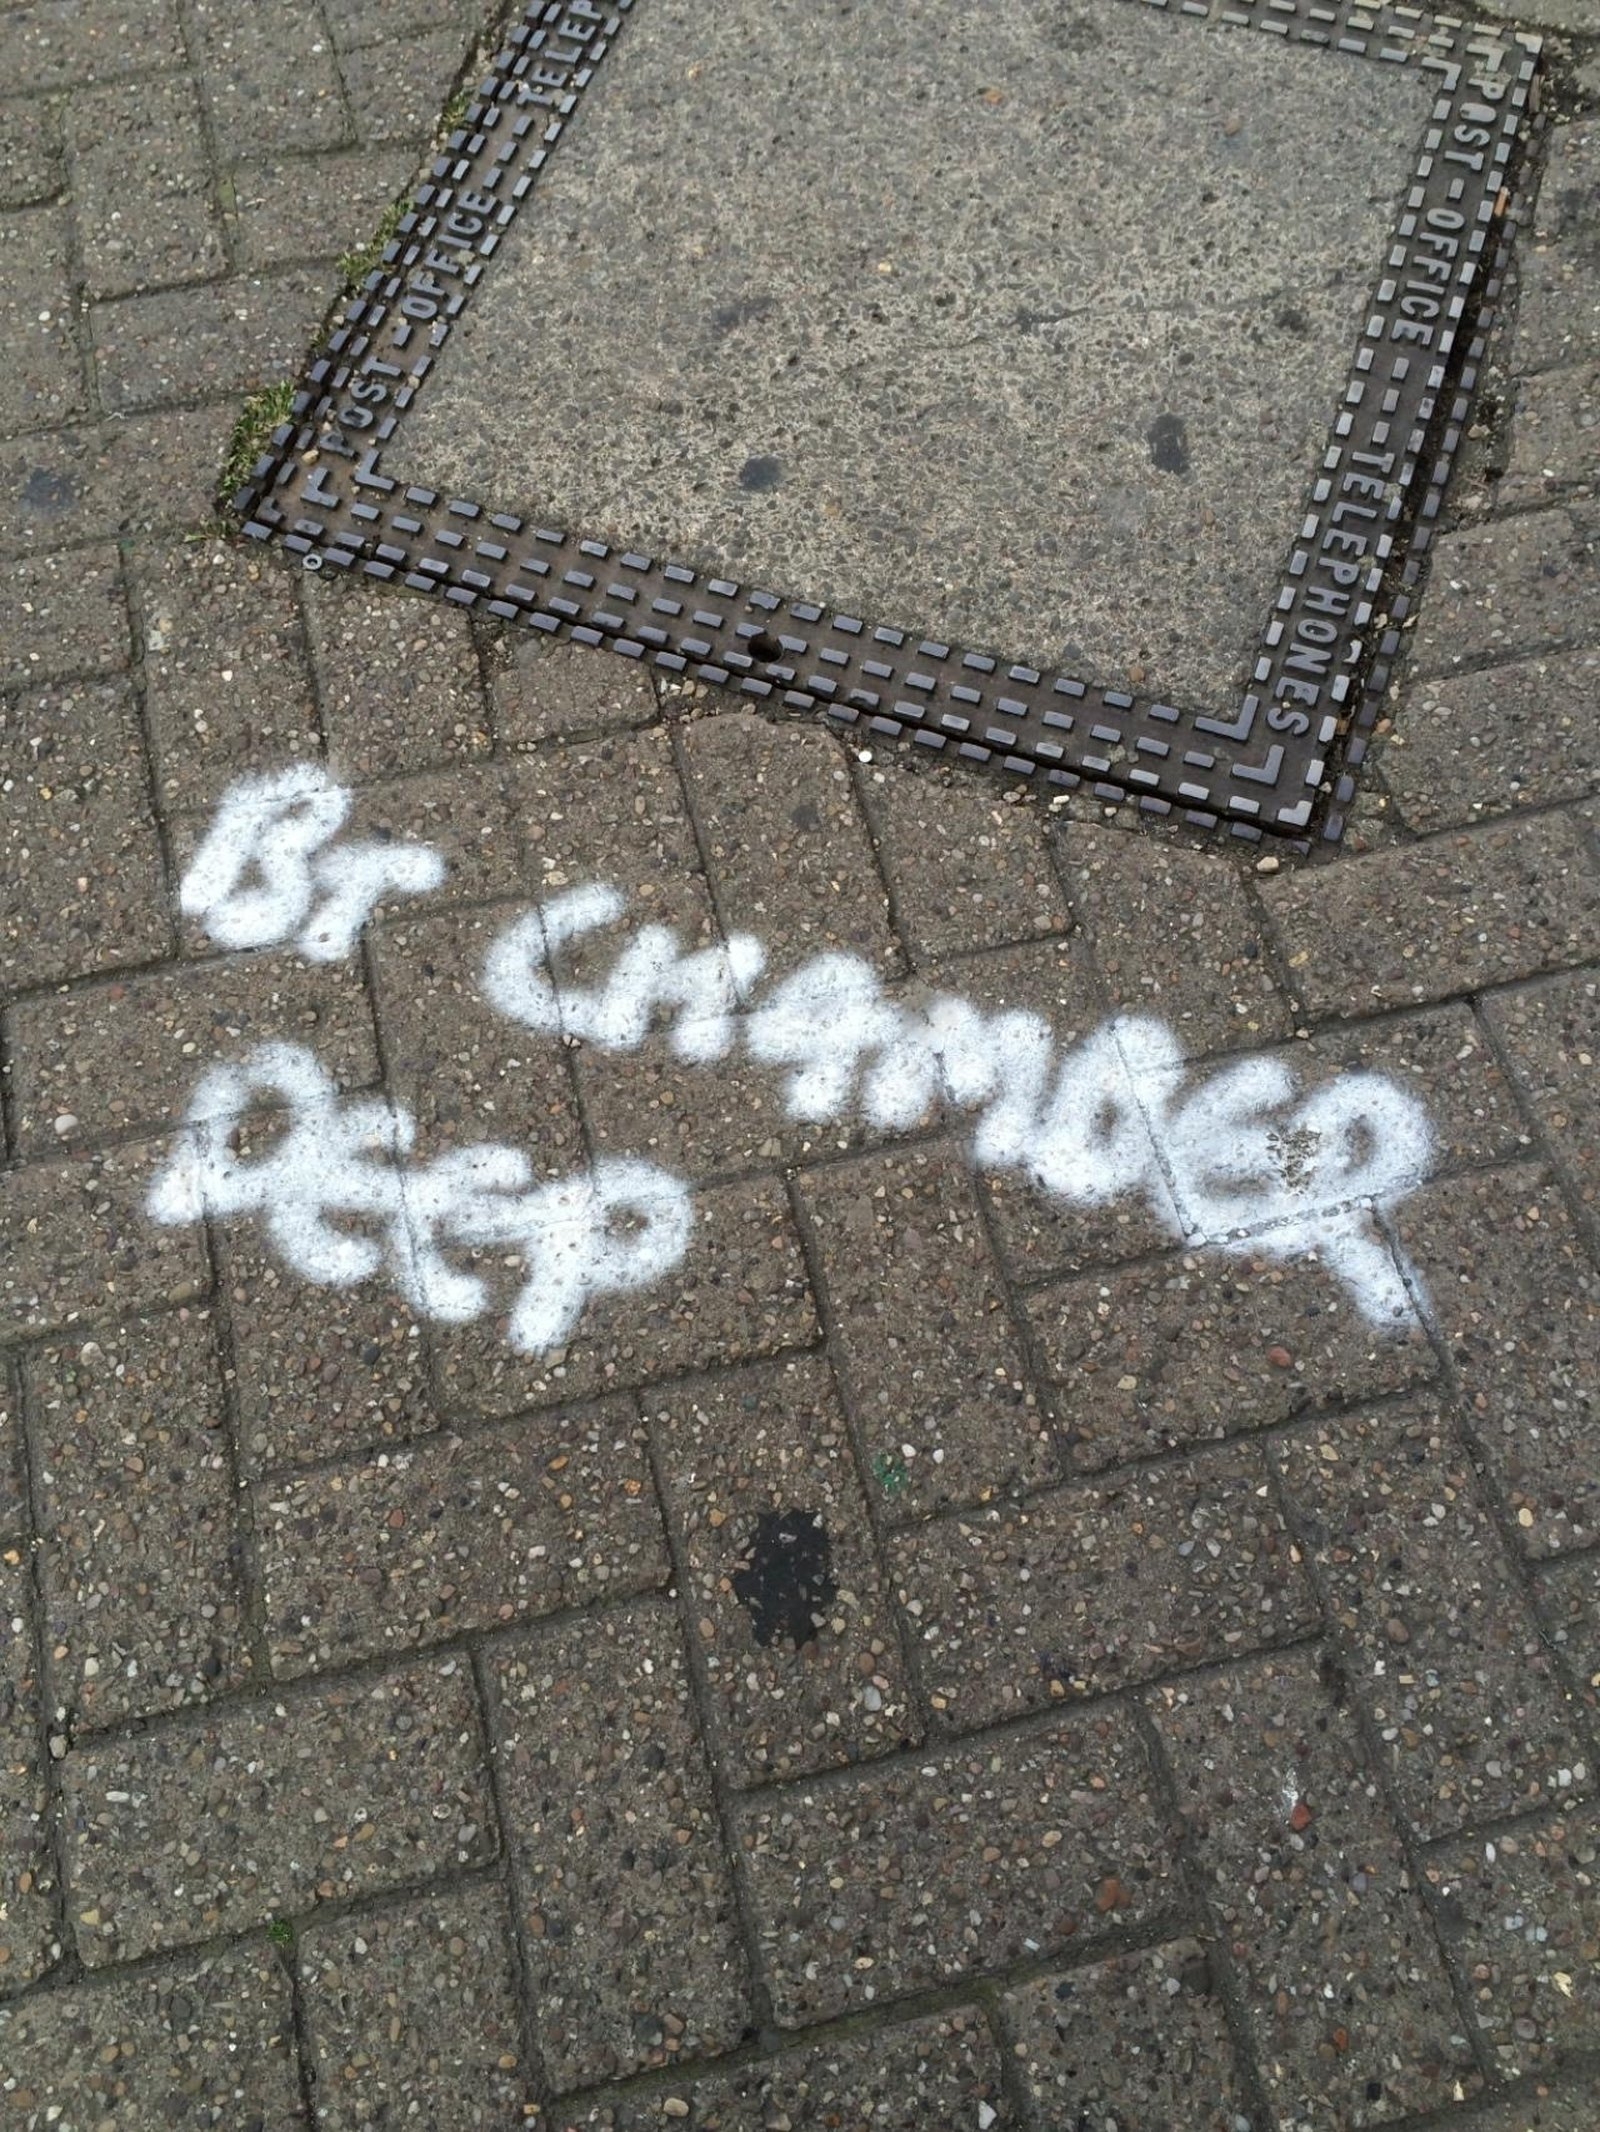 POST-OFFICE-TELEP
POST-OFFICE-TELEPHONES
BT CHAMBER
DEEP